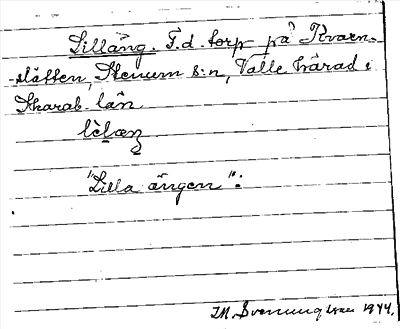 Lilläng. F.d. torp på Kvarn-
-slätten, Stenum s:n, Valle härad i
Skarab. län
"Lilla ängen":
I.M. Svennungsson 1944.